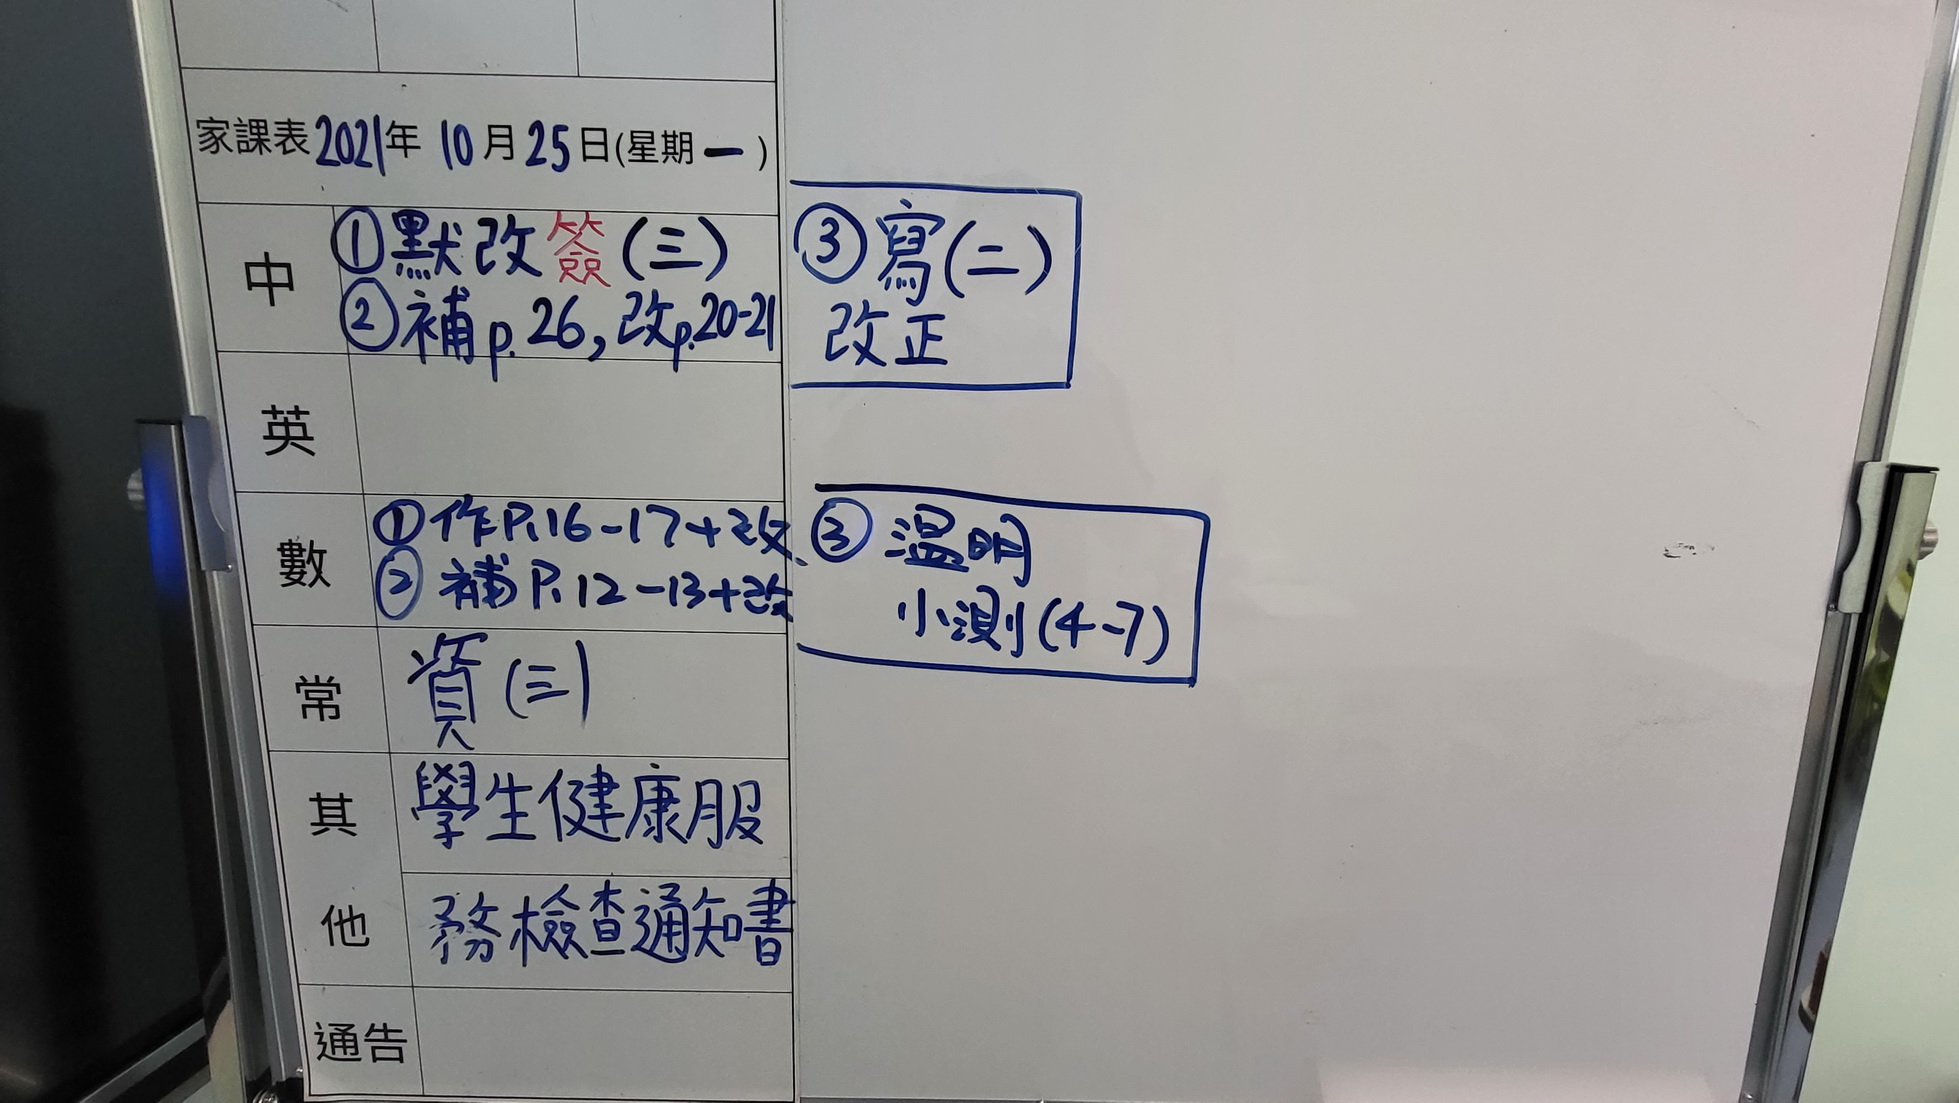 家課表2021年 10月25日(星期一)
中
①默改簽(三)
②補p.26,改p.20-21
③寫(二)
改正
英
數
①作P.16-17+改
②補P.12-13+改
③溫明
小測(4-7)
常
資(三)
其他
學生健康服
務檢查通知書
通告